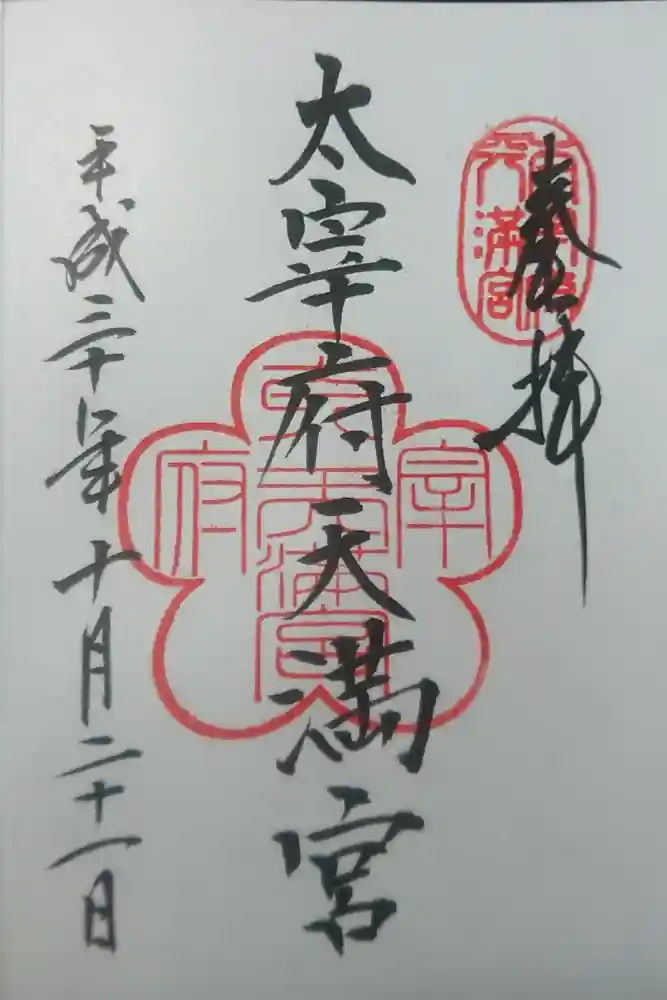 奉拝
太宰府天満宮
平成三十年十月二十一日
天満宮
宰府
天満宮